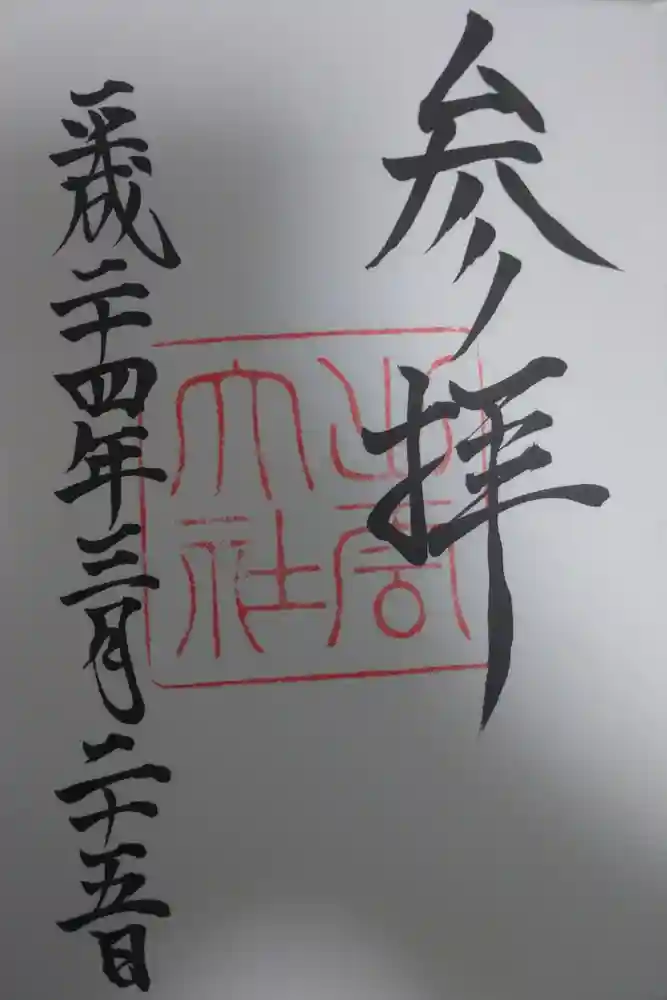 参拝
出雲
大社
平成二十四年三月二十五日